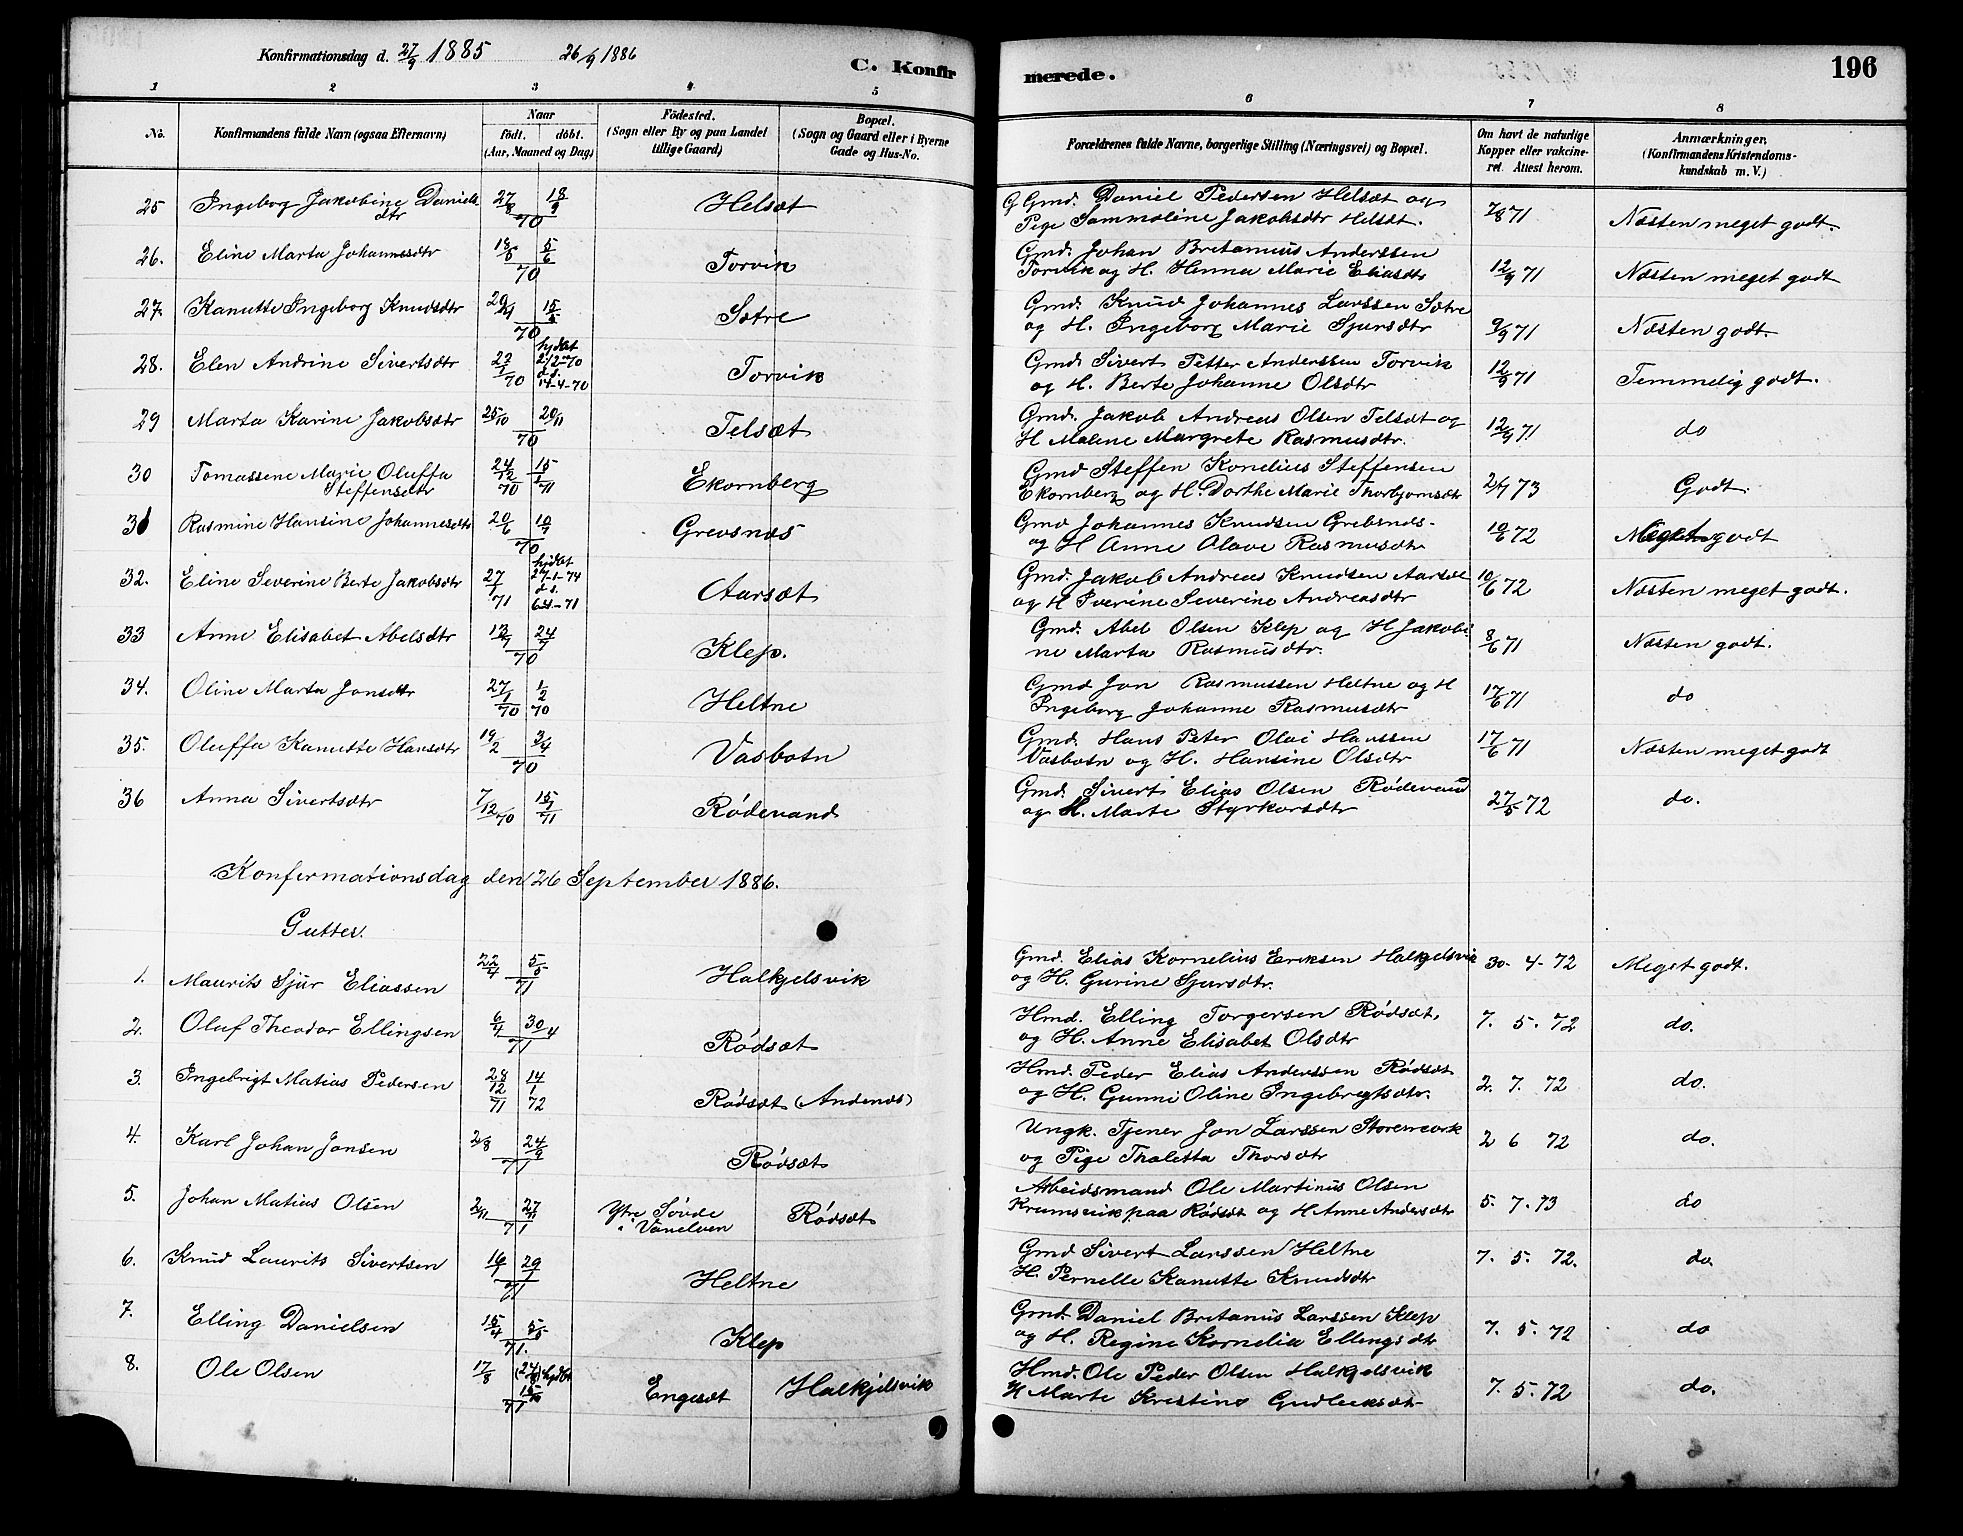 Konfirmationsdag d. 27/9 1885 26/9 1886
C. Konfirmerede.
196
1 2 3 4 5 6 7 8
No.
Konfirmandens fulde Navn (ogsaa Efternavn)
Naar
födt. döbt.
(Aar, Maaned og Dag)
Födested.
(Sogn eller By og paa Landet
tillige Gaard)
Bopæl.
(Sogn og Gaard eller i Byerne
Gade og Hus-No.
Forældrenes fulde Navne, borgerlige Stilling (Næringsvei) og Bopæl.
Om havt de naturlige
Kopper eller vakcine-
ret. Attest herom.
Anmærkninger.
(Konfirmandens Kristendoms-
kundskab m. V.)
25 Ingeborg Jakobine Daniels 27/8 18/9 Helsæt Gmd. Daniel Pedersen Helsæt og 7/8 71 Næsten meget godt.
dtr 70 Pige Sammoline Jakobsdtr Helsæt.
26. Eline Marta Johannesdtr 18/5 5/6 Torvik Gmd. Johan Britanius Anderssen 12/9 71 Næsten meget godt
70 Torvik og H. Henna Marie Eliasdtr
27. Kanutte Ingeborg Knudsdtr 70 Sætre Gmd. Knud Johannes Larssen Sætre 9/9 71 Næsten godt.
og H. Ingeborg Marie Sjursdtr
28. Elen Andrine Sivertsdtr 22/1 70 hjdbt d. s. 14-4-70 Torvik Gmd. Sivert Petter Anderssen Torvik 12/9 71 Temmelig godt.
og H. Berte Johanne Olsdtr
29 Marta Karine Jakobsdtr 25/10 20/11 70 Telsæt Gmd. Jakob Andreas Olsen Telsæt og 12/9 71 do
H Malene Margrete Rasmusdtr.
30 Tomassene Marie Oluffa 24/12 70 15/1 71 Ekornberg Gmd Steffen Kornelius Steffensen 73 Godt.
Steffensdtr Ekornberg og H. Dorthe Marie Thorbjornsdtr
31 Rasmine Hansine Johannesdtr 20/6 10/7 70 Grevsnæs Gmd Johannes Knudsen Grebsnæs- 10/6 72 Meget godt
og H Anne Olave Rasmusdtr
32. Eline Severine Berte Jakobsdtr 27/1 71 hjdbt d. s. Aarsæt Gmd. Jakob Andreas Knudsen Aarsæt 10/6 72 Næsten meget godt.
og H Iverine Severine Andreasdtr
33 Anne Elisabet Abelsdtr 13/7 24/7 70 Klep. Gmd. Abel Olsen Klep og H Jakobi 8/6 71 Næsten godt.
ne Marta Rasmusdtr.
34. Oline Marta Jonsdtr 27/1 70 1/2 70 Heltne Gmd Jon Rasmussen Heltne og H 17/6 71 do
Ingeborg Johanne Rasmusdtr
35. Oluffa Kanutte Hansdtr 19/2 3/4 70 Vasbotn Gmd. Hans Peter Olai Hanssen 17/6 71 Næsten meget godt
Vasbotn og H. Hansine Olsdtr
36 Anna Sivertsdtr 7/12 70 15/1 71 Rødevand Gmd. Sivert Elias Olsen Rødevand 27/5 72 do.
og H. Marte Styrkorsdtr
Konfirmationsdag den 26 September 1886.
Gutter.
1. Maurits Sjur Eliassen 22/4 5/5 71 Halkjelsvik Gmd. Elias Kornelius Eriksen Halkjelsvik 30-4-72 Meget godt.
og H. Gurine Sjursdtr.
2. Oluf Theodor Ellingsen 6/4 30/4 71 Rødsæt Hmd. Elling Torgersen Rødsæt, 7. 5. 72 do.
og H. Anne Elisabet Olsdtr
3. Ingebrigt Matias Pedersen 28/12 71 14/1 72 Rødsæt (Andenæs) Hmd. Peder Elias Anderssen Rødsæt 2. 7. 72 do.
og H. Gunni Oline Ingebregtsdtr.
4. Karl Johan Jonsen 2/8 24/9 71 Rødsæt Ungk. Tjener Jon Larssen Storemork 2 6 72 do.
og Pige Thaletta Thorsdtr
5. Johan Matias Olsen 2/11 27/11 71 Ytre Søvde i Vanelven Rødsæt Arbeidsmand Ole Martinus Olsen 5. 7. 73 do
Krumsvik paa Rødsæt og H Anne Andersdtr
6. Knud Laurits Sivertsen 16/1 29/1 71 Heltne Gmd Sivert Larssen Heltne 7. 5. 72. do.
H. Pernelle Kanutte Knudsdtr
7. Elling Danielsen 15/4 5/5 71. Klep Gmd. Daniel Britanus Larssen Klep 7. 5. 72 do
og H. Regine Kornelia Ellingsdtr
8. Ole Olsen 17/8 (24/8) hjdbt 71 Engesæt Halkjelsvik Hmd. Ole Peder Olsen Halkjelsvik 7. 5. 72 do.
H Marte Kristine Gudleiksdtr